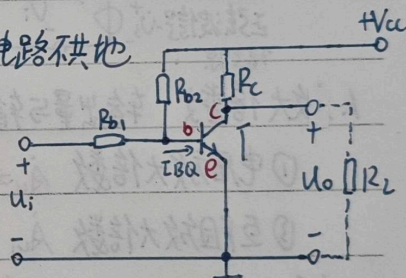 电路不共地
+Vcc
Rb2
Rc
c
Rb1
b
T
+
IBQ
e
+
ui
uo
RL
-
-